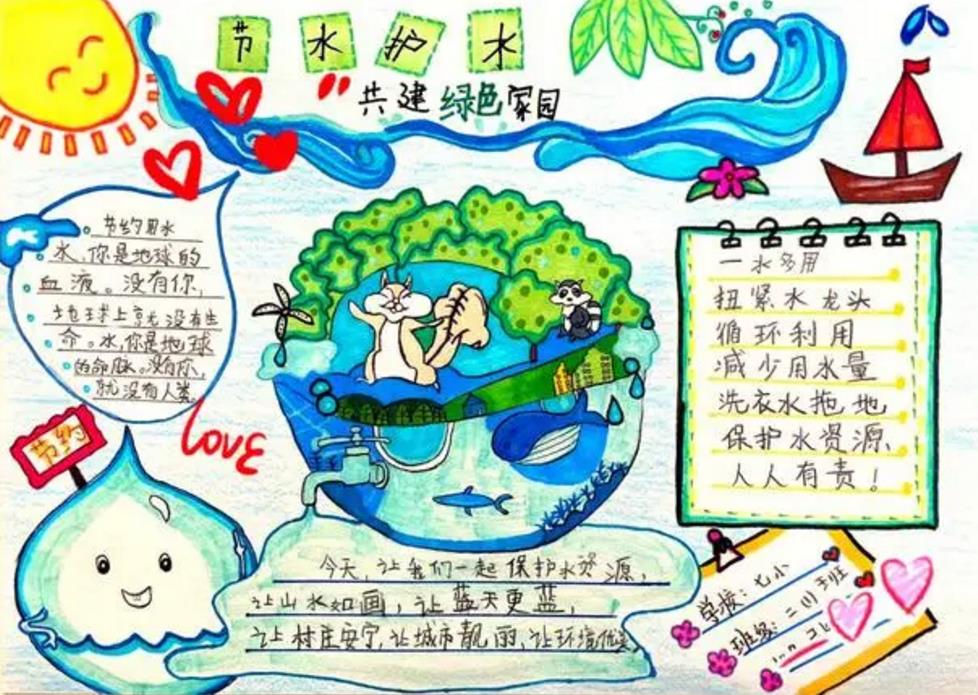 节水护水
共建绿色家园
节约用水
水,你是地球的
血液。没有你,
地球上就没有生
命。水,你是地球
的命脉。没有你,
就没有人类
LOVE
节约
一水多用
扭紧水龙头
循环利用
减少用水量
洗衣水拖地
保护水资源、
人人有责!
今天,让我们一起保护水资源,
让山水如画,让蓝天更蓝,
让村庄安宁,让城市靓丽,让环境优美
学校:七小
班级:二(1)班